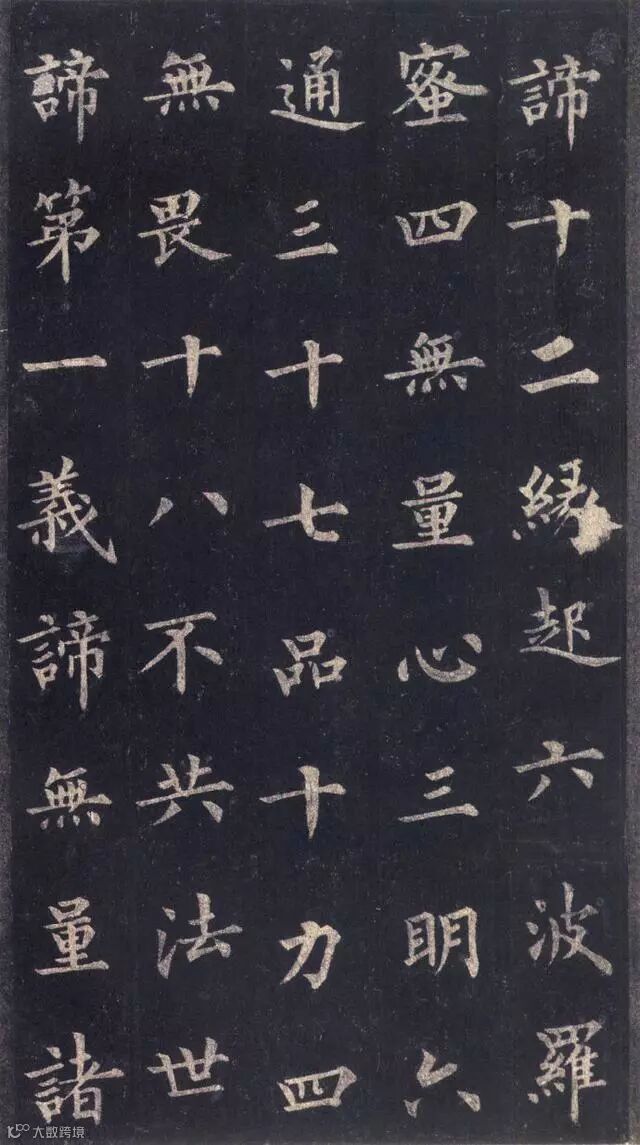 諦十二緣起六波羅
蜜四無量心三明六
通三十七品十力四
無畏十八不共法世
諦第一義諦無量諸
大数跨境